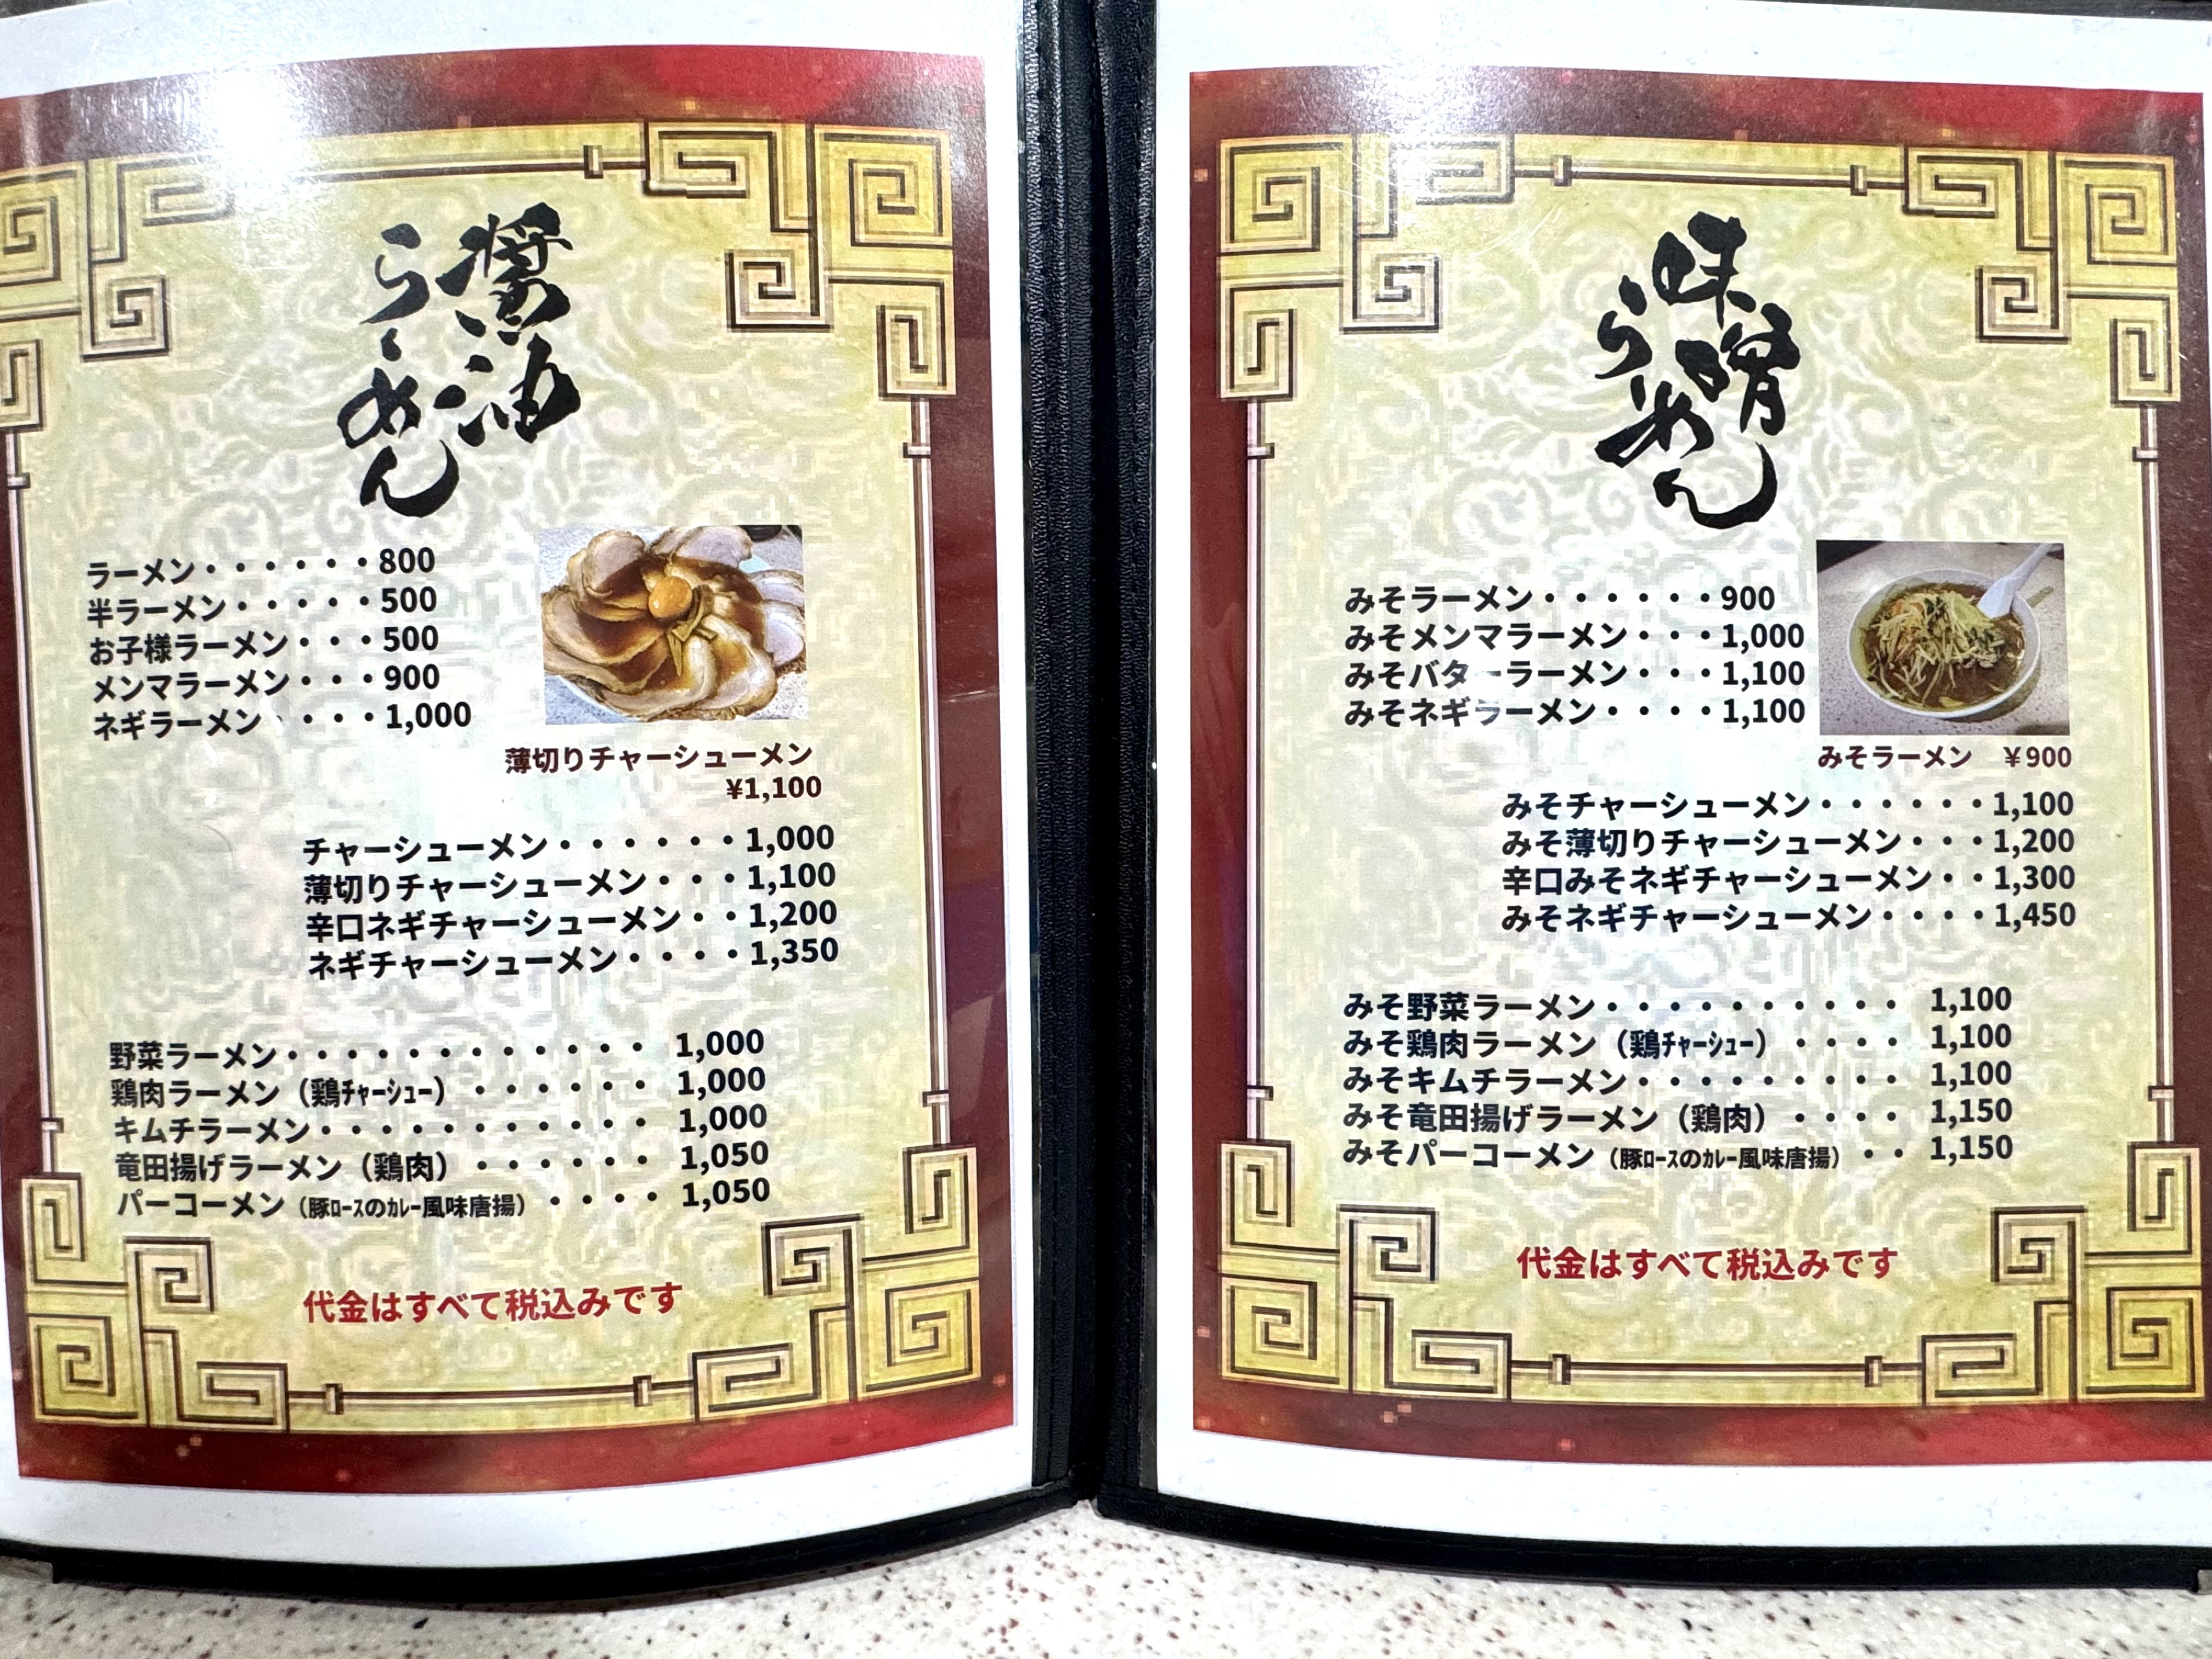 醤油
らーめん
ラーメン・・・・・・800
半ラーメン・・・・・500
お子様ラーメン・・・500
メンマラーメン・・・900
ネギラーメン・・・・1,000
薄切りチャーシューメン
¥1,100
チャーシューメン・・・・・・1,000
薄切りチャーシューメン・・・1,100
辛口ネギチャーシューメン・・1,200
ネギチャーシューメン・・・・1,350
野菜ラーメン・・・・・・・・・・・・ 1,000
鶏肉ラーメン（鶏ﾁｬｰｼｭｰ）・・・・・・ 1,000
キムチラーメン・・・・・・・・・・・ 1,000
竜田揚げラーメン（鶏肉）・・・・・・ 1,050
パーコーメン（豚ﾛｰｽのｶﾚｰ風味唐揚）・・・・ 1,050
代金はすべて税込みです
味噌
らーめん
みそラーメン・・・・・・900
みそメンマラーメン・・・1,000
みそバターラーメン・・・1,100
みそネギラーメン・・・・1,100
みそラーメン ￥900
みそチャーシューメン・・・・・・1,100
みそ薄切りチャーシューメン・・・1,200
辛口みそネギチャーシューメン・・1,300
みそネギチャーシューメン・・・・1,450
みそ野菜ラーメン・・・・・・・・・・ 1,100
みそ鶏肉ラーメン（鶏ﾁｬｰｼｭｰ）・・・・ 1,100
みそキムチラーメン・・・・・・・・・ 1,100
みそ竜田揚げラーメン（鶏肉）・・・・ 1,150
みそパーコーメン（豚ﾛｰｽのｶﾚｰ風味唐揚）・・ 1,150
代金はすべて税込みです